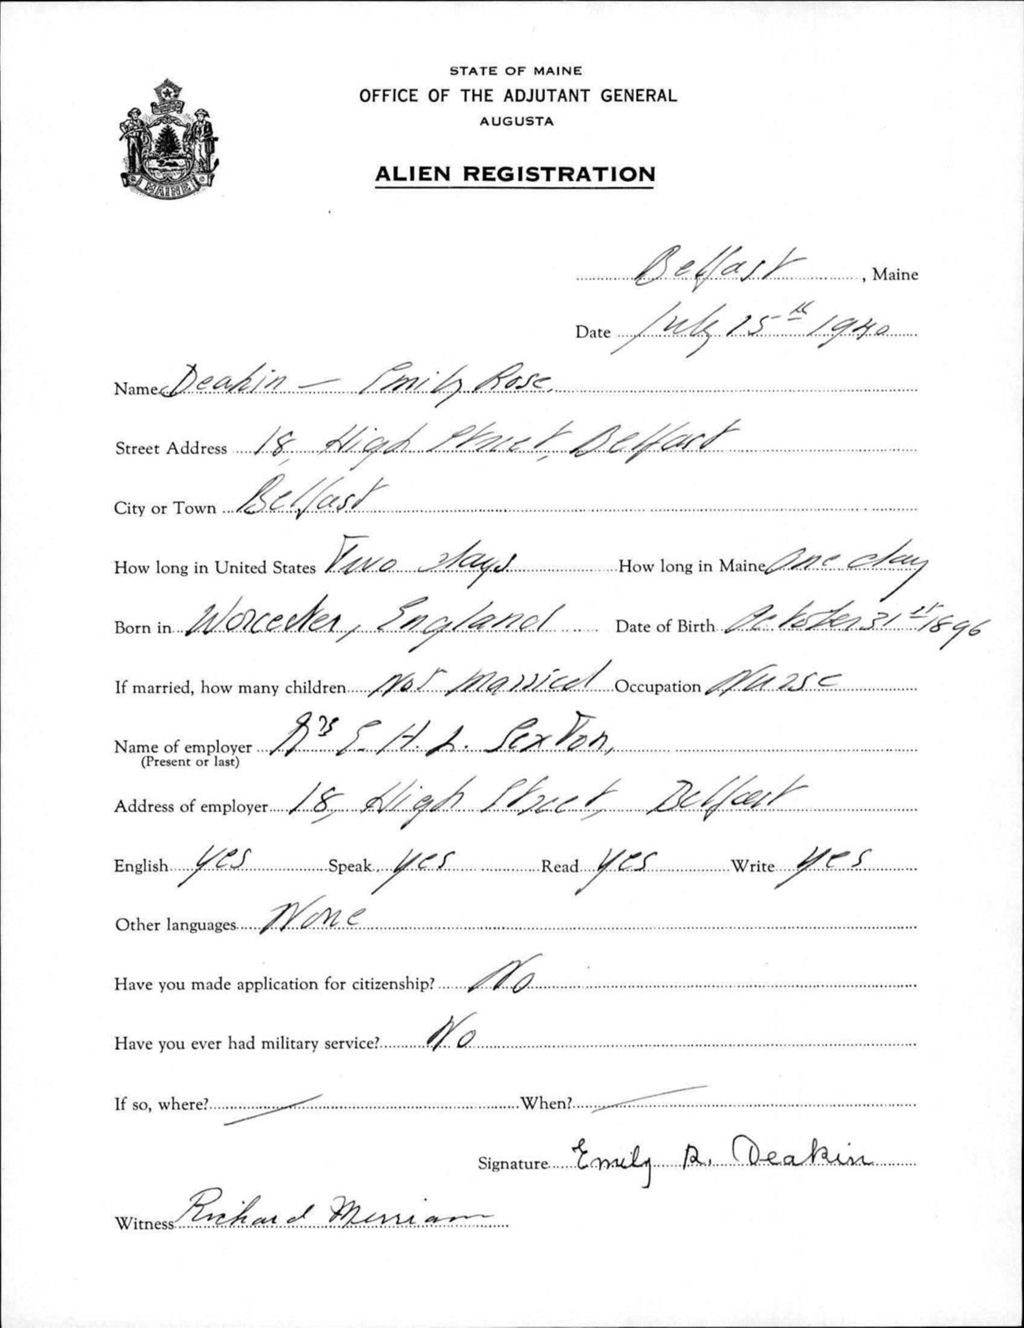 STATE OF MAINE
OFFICE OF THE ADJUTANT GENERAL
AUGUSTA
ALIEN REGISTRATION
MAINE
Belfast, Maine
Date July 15th 1940
Name Deakin — Emily Rose.
Street Address 18, High Street, Belfast
City or Town Belfast
How long in United States Two days How long in Maine One day
Born in Worcester, England Date of Birth October 31st 1896
If married, how many children Not Married Occupation Nurse
Name of employer Mrs E. H. L. Sexton,
(Present or last)
Address of employer 18, High Street, Belfast
English yes Speak yes Read yes Write yes
Other languages None
Have you made application for citizenship? No
Have you ever had military service? No
If so, where? When?
Signature Emily R. Deakin
Witness Richard Merriam